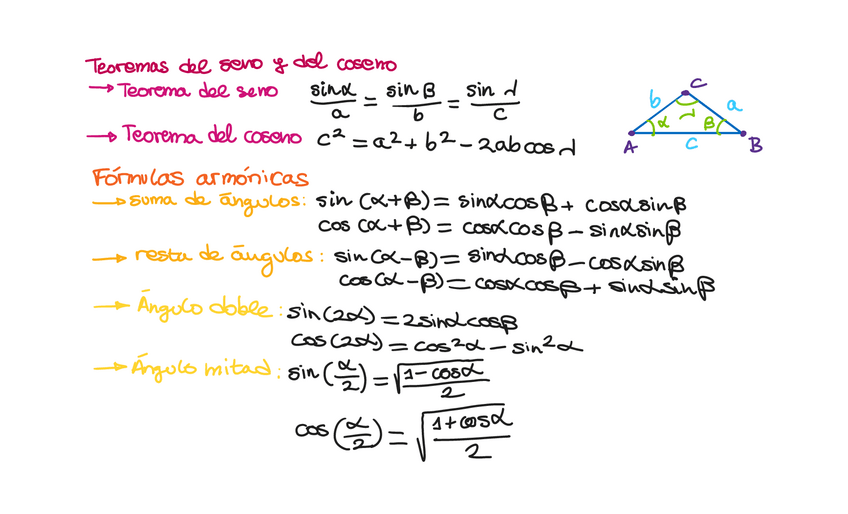 Teoremas del seno y del coseno
→ Teorema del seno sinα/a = sinβ/b = sin γ/c
→ Teorema del coseno c² = a² + b² - 2ab cos γ
C
b a
α γ β
A c B
Fórmulas armónicas
→ suma de ángulos: sin (α+β) = sinαcosβ + cosαsinβ
cos (α+β) = cosαcosβ - sinαsinβ
→ resta de ángulos: sin(α-β) = sinαcosβ - cosαsinβ
cos(α-β) = cosαcosβ + sinαsinβ
→ Ángulo doble: sin(2α) = 2sinαcosβ
cos(2α) = cos²α - sin²α
→ Ángulo mitad: sin(α/2) = √(1-cosα/2)
cos(α/2) = √(1+cosα/2)